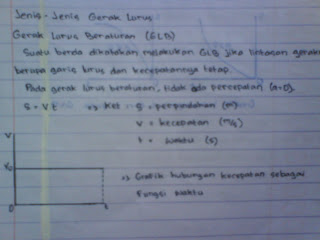 Jenis-Jenis Gerak Lurus
Gerak Lurus Beraturan (GLB)
Suatu benda dikatakan melakukan GLB jika lintasan gerak
berupa garis lurus dan kecepatannya tetap.
Pada gerak lurus beraturan, tidak ada percepatan (a=0).
S = V t => Ket : S = perpindahan (m)
V = kecepatan (m/s)
t = waktu (s)
V
V₀
=> Grafik hubungan kecepatan sebagai
fungsi waktu
0 t